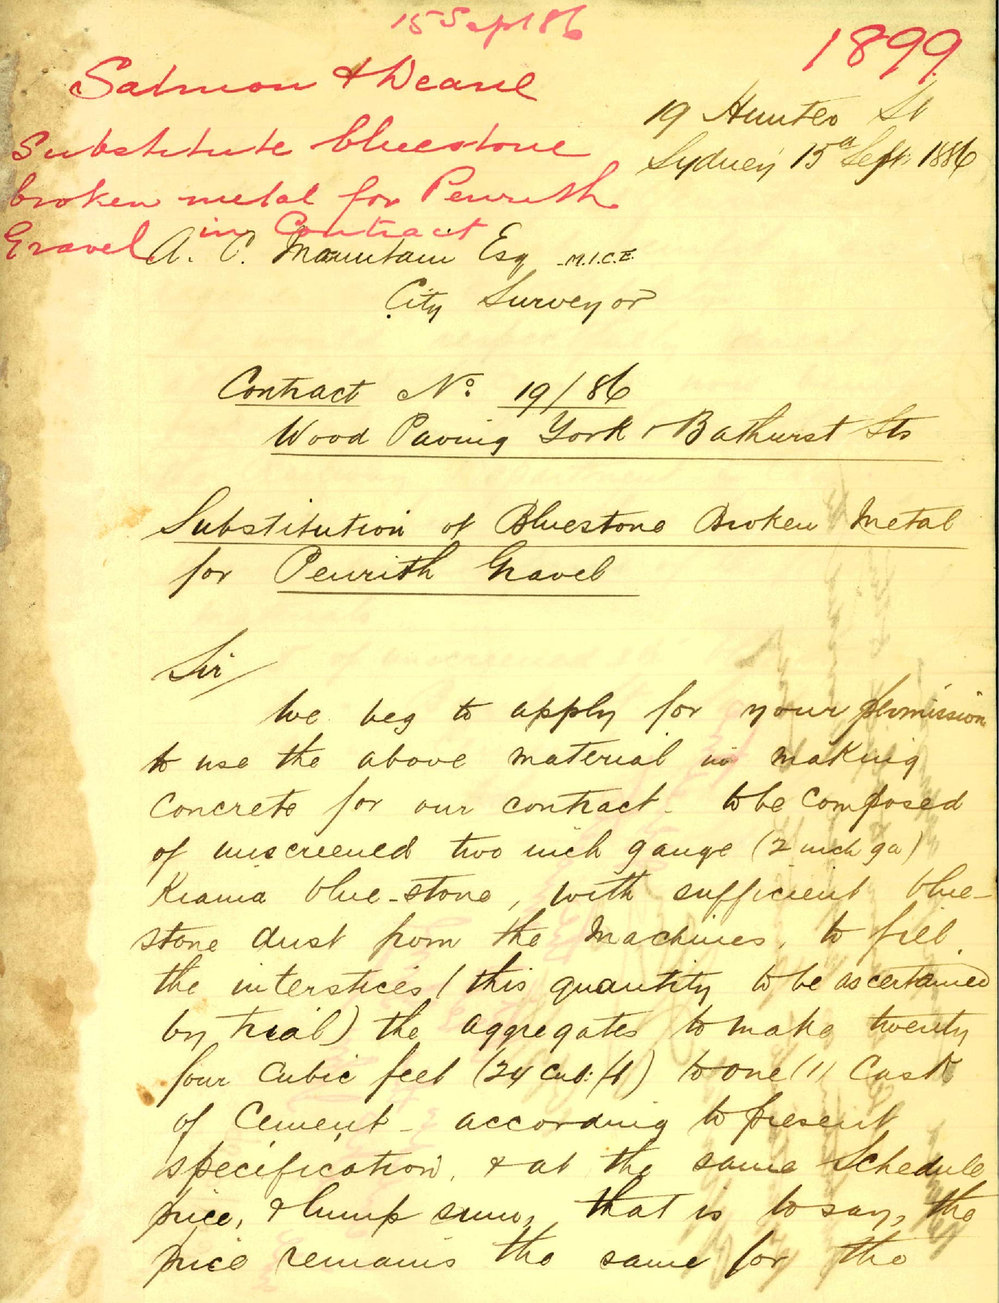 15 Sept 86
1899.
Salmon & Deane
Substitute bluestone
broken metal for Penrith
Gravel in Contract
19 Hunter St
Sydney 15th Sept. 1886
A. C. Mountain Esq M.I.C.E.
City Surveyor
Contract No. 19/86
Wood Paving York & Bathurst Sts
Substitution of Bluestone Broken Metal
for Penrith Gravel
Sir
We beg to apply for your permission
to use the above material in making
Concrete for our contract - to be composed
of unscreened two inch gauge (2 inch ga)
Kiama blue-stone, with sufficient blue-
stone dust from the Machines, to fill
the interstices (this quantity to be ascertained
by trial) the aggregates to make twenty
four cubic feet (24 cub: ft) to one (1) Cask
of Cement - according to present
specification, & at the same Schedule
price, & lump sum, that is to say, the
price remains the same for the